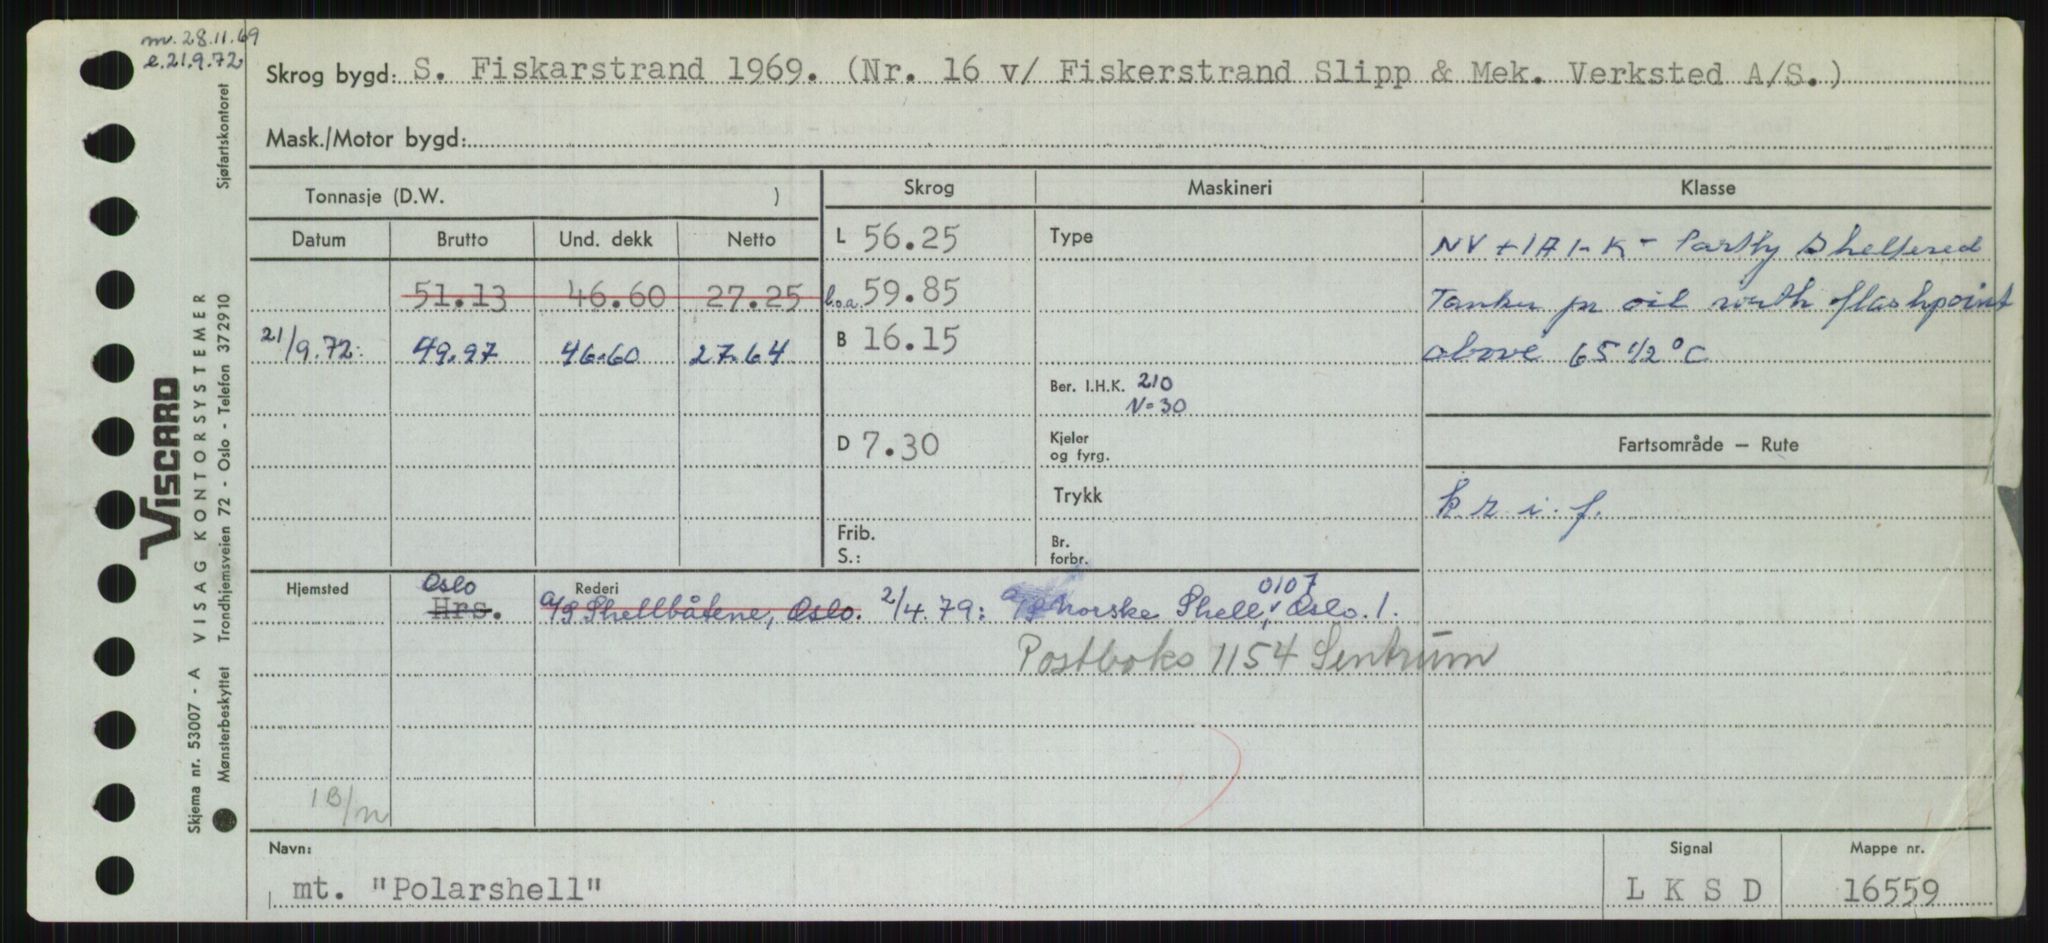 m. 28.11.69
e. 21.9.72
Skrog bygd: S. Fiskarstrand 1969. (Nr. 16 v/ Fiskerstrand Slipp & Mek. Verksted A/S.)
Mask./Motor bygd:
Tonnasje (D.W. )
Skrog Maskineri Klasse
Datum Brutto Und. dekk Netto
L 56.25 Type NV + 1A1-K - Partly Sheltered
51.13 46.60 27.25 l.o.a. 59.85 Tanker for oil with flashpoint
21/9.72: 49.97 46.60 27.64 B 16.15 above 65 1/2 °C
Ber. I.H.K. 210
N=30
D 7.30 Kjeler og fyrg. Fartsområde — Rute
Trykk k r i. f.
Frib. S.: Br. forbr.
Hjemsted Oslo Rederi 0107
Hrs. A/S Shellbåtene, Oslo. 2/4.79: A/S Norske Shell, Oslo. 1.
Postboks 1154 Sentrum
1B/n
Navn: Signal Mappe nr.
mt. "Polarshell" L K S D 16559
VISCARD
Skjema nr. 53007 - A VISAG KONTORSYSTEMER Sjøfartskontoret
Mønsterbeskyttet Trondhjemsveien 72 - Oslo - Telefon 372910